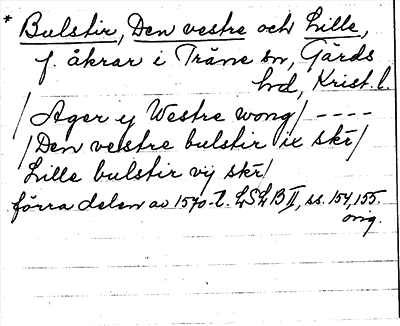 * Bulstir, Den vestre och Lille,
f. åkrar i Träne sn, Gärds
hd, Krist. l.
/ Ager y Westre wong / ----
/ Den vestre bulstir ix skr /
Lille bulstir vij skr /
förra delen av 1570-t. LSLB II, ss. 154, 155.
orig.